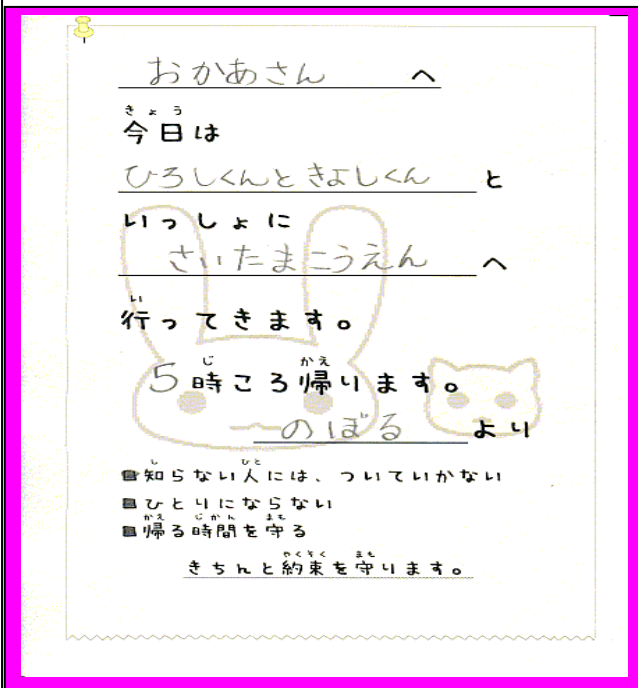 おかあさん へ
今日は
ひろしくんときよしくん と
いっしょに
さいたまこうえん へ
行ってきます。
5時ころ帰ります。
のぼる より
■知らない人には、ついていかない
■ひとりにならない
■帰る時間を守る
きちんと約束を守ります。